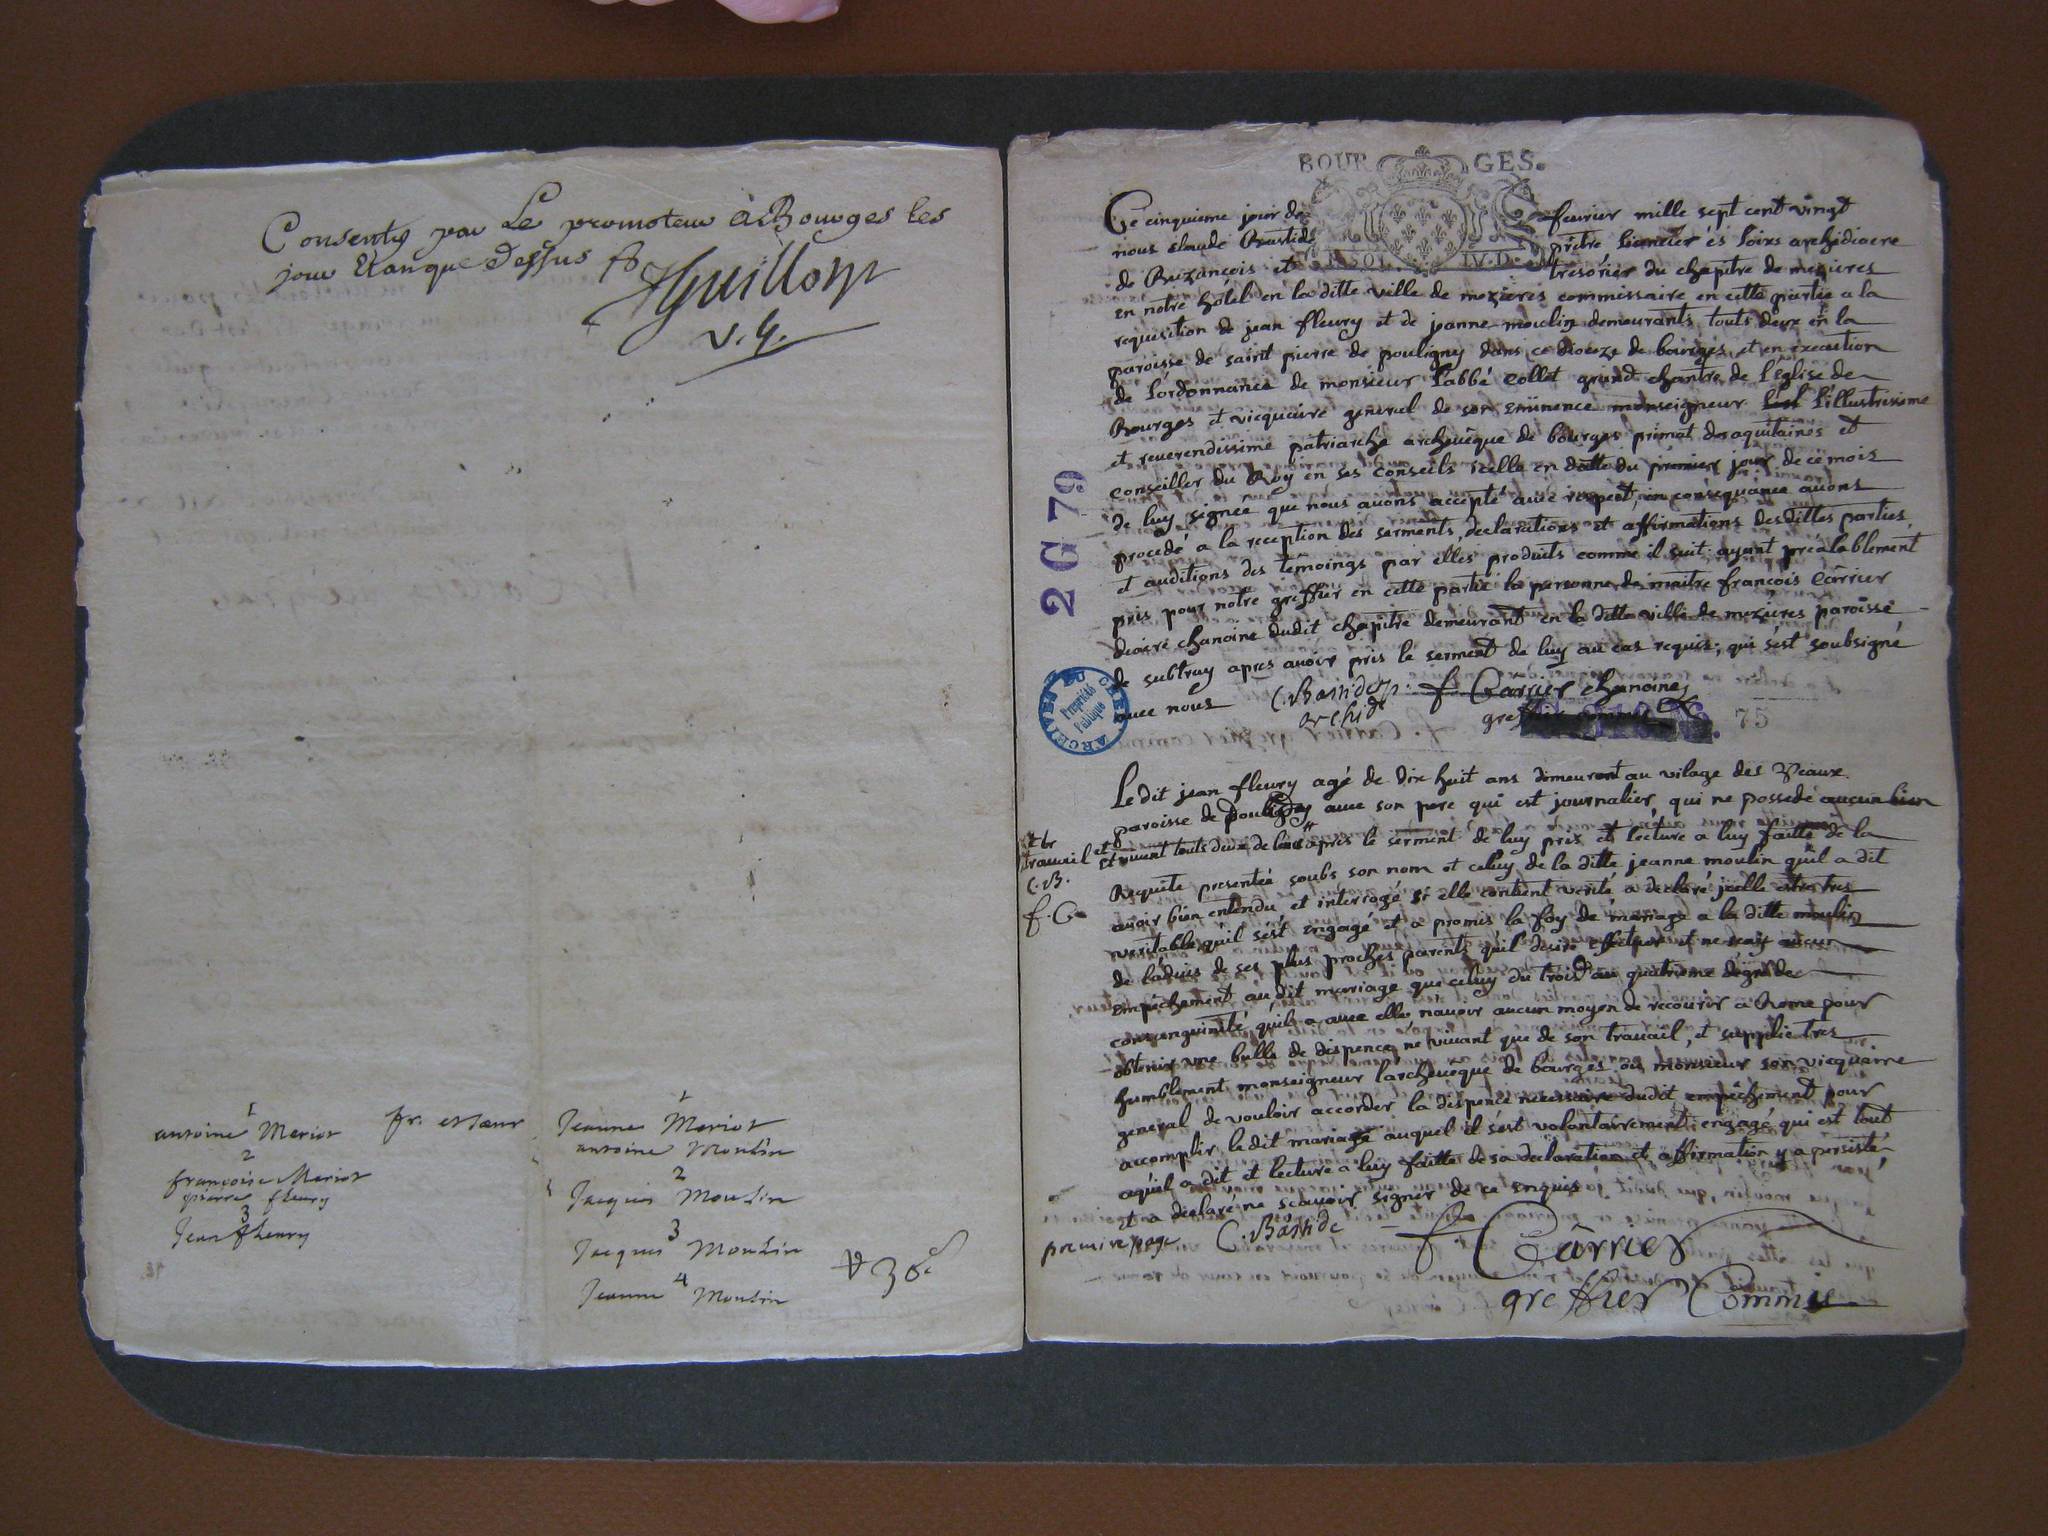 Consenty par Le promoteur à Bourges les
jour et an que Dessus
JGuillon
v. g.
1
antoine Meriot fr. et sœur
2
françoise Meriot
pierre fleury
3
Jean fleury
1
Jeanne Meriot
antoine Moulin
2
Jacques Moulin
3
Jacques Moulin
4
Jeanne Moulin
BOURGES.
Ce cinquieme jour de fevrier mille sept cent vingt
nous claude Bastide prêtre licencier és loixs archidiacre
de Buzançois et tresórier du chapitre de mezieres
en notre hôtel en la ditte ville de mezieres commissaire en cette partie a la
requisition de jean fleury et de jeanne moulin demeurants touts deux en la
paroisse de saint pierre de pouligny dans ce dioceze de bourges et en execution
de l'ordonnance de monsieur l'abbé collet grand chantre de l'église de
Bourges et vicquaire general de son eminence monseigneur l'illustrissime
et reverendissime patriarche archevêque de bourges primat des aquitaines et
conseiller du Roy en ses conseils icelle en datte du premier jour de ce mois
de luy signée que nous avons accepté avec respect, en consequance avons
procedé a la reception des serments, declarations et affirmations desdittes parties
et auditions des témoings par elles produits comme il suit ayant préalablement
pris pour notre greffier en cette partie la personne de maitre françois Cârrier
diacre chanoine dudit chapitre demeurant en la ditte ville de mezieres paroisse
de subtray apres avoir pris le serment de luy au cas requis, qui s'est soubsigné
avec nous C. Bastide f. Carrier chanoine
archid.
2 G 79
ARCHIVES DU CHER
Propriété
Publique
75
Le dit jean fleury agé de dix huit ans demeurant au vilage des
paroisse de pouligny avec son pere qui est journalier, qui ne possede aucun bien
et vivant touts deux de leur apres le serment de luy pris et lecture a luy faitte de la
travail et
C. B.
f. C.
Requête presentée soubs son nom et celuy de la ditte jeanne moulin qu'il a dit
avoir bien entendu et interrogé si elle contient verité a declaré icelle estre tres
veritable qu'il s'ést engagé et a promis la foy de mariage a la ditte moulin
de l'advis de ses plus proches parents qu'il desire effectuer et ne scait aucun
empêchement au dit mariage que celuy du trois au quatrieme degré de
consenguinité qu'il a avec elle n'avoir aucun moyen de recourir a Rome pour
obtenir une bulle de dispence ne vivant que de son travail, et supplie tres
humblement monseigneur l'archevêque de bourges ou monsieur son vicquaire
general de vouloir accorder la dispence necessaire dudit empêchement pour
accomplir le dit mariage auquel il s'ést volontairement engagé qui est tout
cequ'il a dit et lecture a luy faitte de sa declaration et affirmation y a persisté
et a declaré ne scavoir signer de ce enquis
premire page C. Bastide f. Cârrier
greffier Commis